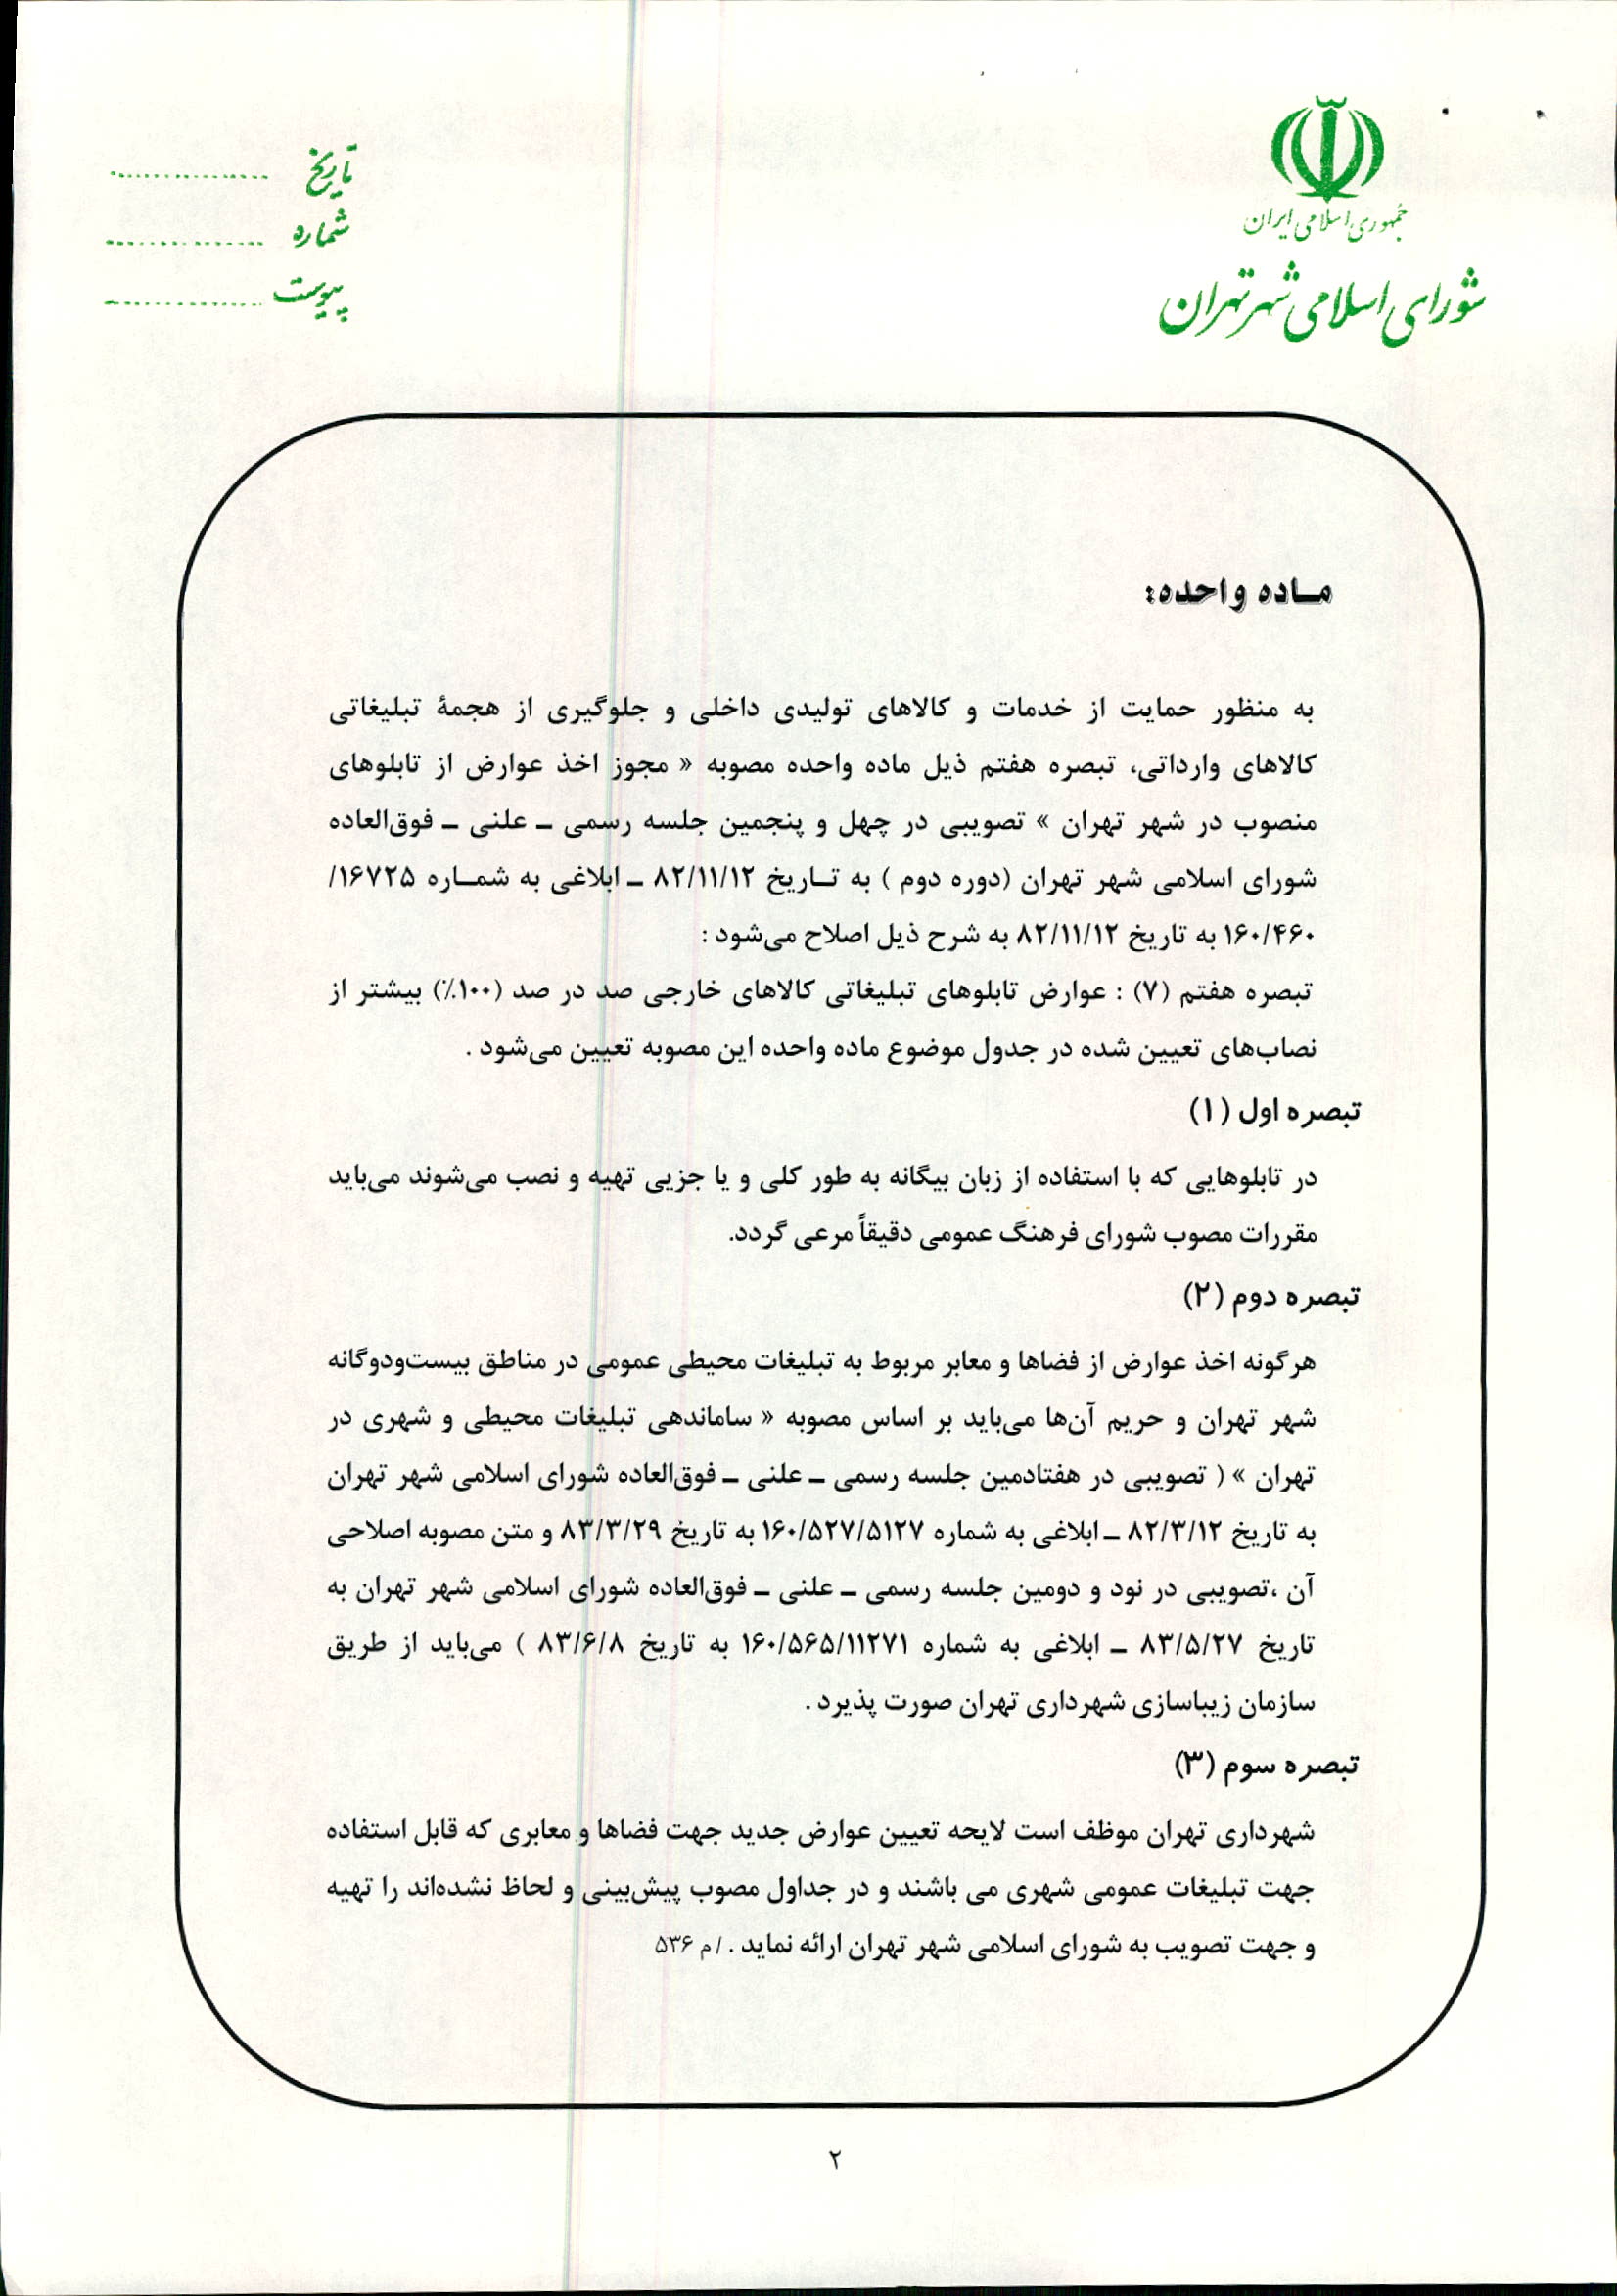 جمهوری اسلامی ایران
شورای اسلامی شهر تهران
تاریخ ................
شماره ................
پیوست ................
مـاده واحده:
به منظور حمایت از خدمات و کالاهای تولیدی داخلی و جلوگیری از هجمهٔ تبلیغاتی
کالاهای وارداتی، تبصره هفتم ذیل ماده واحده مصوبه « مجوز اخذ عوارض از تابلوهای
منصوب در شهر تهران » تصویبی در چهل و پنجمین جلسه رسمی ـ علنی ـ فوق‌العاده
شورای اسلامی شهر تهران (دوره دوم ) به تـاریخ ۸۲/۱۱/۱۲ ـ ابلاغی به شمـاره ۱۶۷۲۵/
۱۶۰/۴۶۰ به تاریخ ۸۲/۱۱/۱۲ به شرح ذیل اصلاح می‌شود :
تبصره هفتم (۷) : عوارض تابلوهای تبلیغاتی کالاهای خارجی صد در صد (۱۰۰٪) بیشتر از
نصاب‌های تعیین شده در جدول موضوع ماده واحده این مصوبه تعیین می‌شود .
تبصره اول (۱)
در تابلوهایی که با استفاده از زبان بیگانه به طور کلی و یا جزیی تهیه و نصب می‌شوند می‌باید
مقررات مصوب شورای فرهنگ عمومی دقیقاً مرعی گردد.
تبصره دوم (۲)
هرگونه اخذ عوارض از فضاها و معابر مربوط به تبلیغات محیطی عمومی در مناطق بیست‌ودوگانه
شهر تهران و حریم آن‌ها می‌باید بر اساس مصوبه « ساماندهی تبلیغات محیطی و شهری در
تهران » ( تصویبی در هفتادمین جلسه رسمی ـ علنی ـ فوق‌العاده شورای اسلامی شهر تهران
به تاریخ ۸۲/۳/۱۲ ـ ابلاغی به شماره ۱۶۰/۵۲۷/۵۱۲۷ به تاریخ ۸۳/۳/۲۹ و متن مصوبه اصلاحی
آن ،تصویبی در نود و دومین جلسه رسمی ـ علنی ـ فوق‌العاده شورای اسلامی شهر تهران به
تاریخ ۸۳/۵/۲۷ ـ ابلاغی به شماره ۱۶۰/۵۶۵/۱۱۲۷۱ به تاریخ ۸۳/۶/۸ ) می‌باید از طریق
سازمان زیباسازی شهرداری تهران صورت پذیرد .
تبصره سوم (۳)
شهرداری تهران موظف است لایحه تعیین عوارض جدید جهت فضاها و معابری که قابل استفاده
جهت تبلیغات عمومی شهری می باشند و در جداول مصوب پیش‌بینی و لحاظ نشده‌اند را تهیه
و جهت تصویب به شورای اسلامی شهر تهران ارائه نماید . / م ۵۳۶
۲